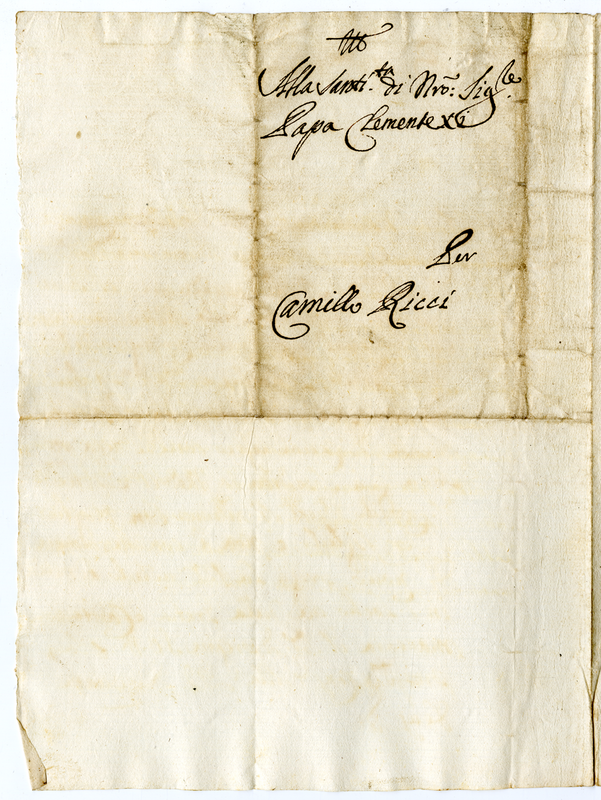 Alla Santi.tà di Nrõ: Sig.re
Papa Clemente XI
Per
Camillo Ricci